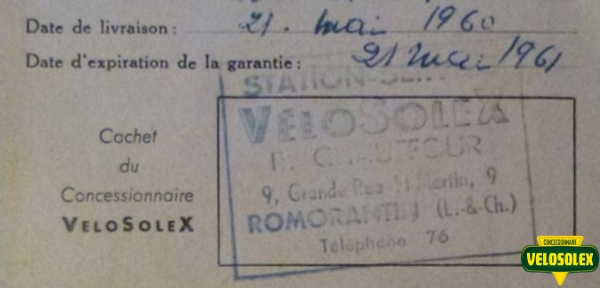 Date de livraison : 21. mai 1960
Date d'expiration de la garantie : 21 mai 1961
STATION-SER
VELOSOLEX
Cachet
du
Concessionnaire
VELOSOLEX
R.
9, Grande Rue St-Martin, 9
ROMORANTIN (L.-&-Ch.)
Téléphone 76
CONCESSIONNAIRE
VELOSOLEX